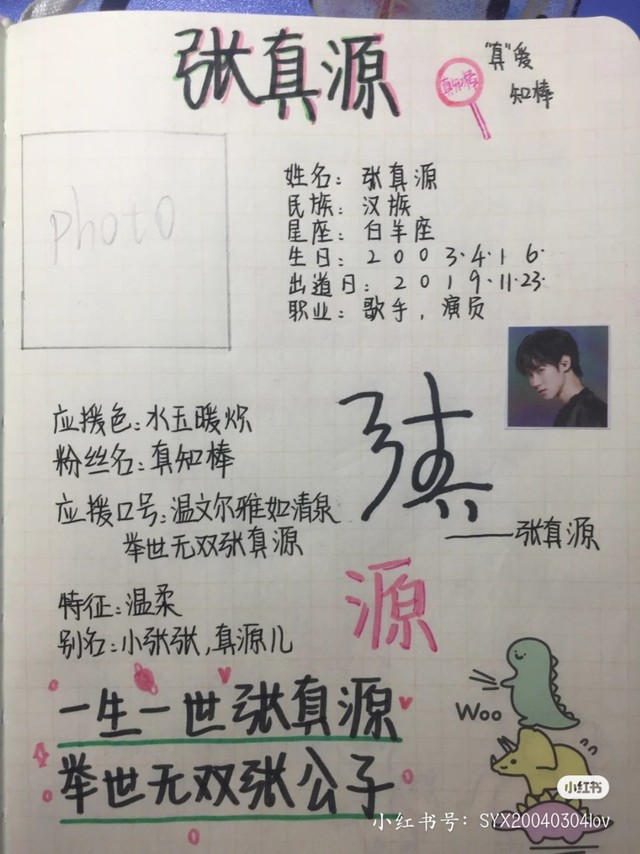 张真源
"真"爱
知棒
真知棒
photo
姓名：张真源
民族：汉族
星座：白羊座
生日：2003.4.16.
出道日：2019.11.23.
职业：歌手，演员
应援色：水玉暖炽
粉丝名：真知棒
应援口号：温文尔雅如清泉
举世无双张真源
张真
——张真源
源
特征：温柔
别名：小张张，真源儿
一生一世张真源
举世无双张公子
Woo
小红书
小红书号：SYX20040304lov